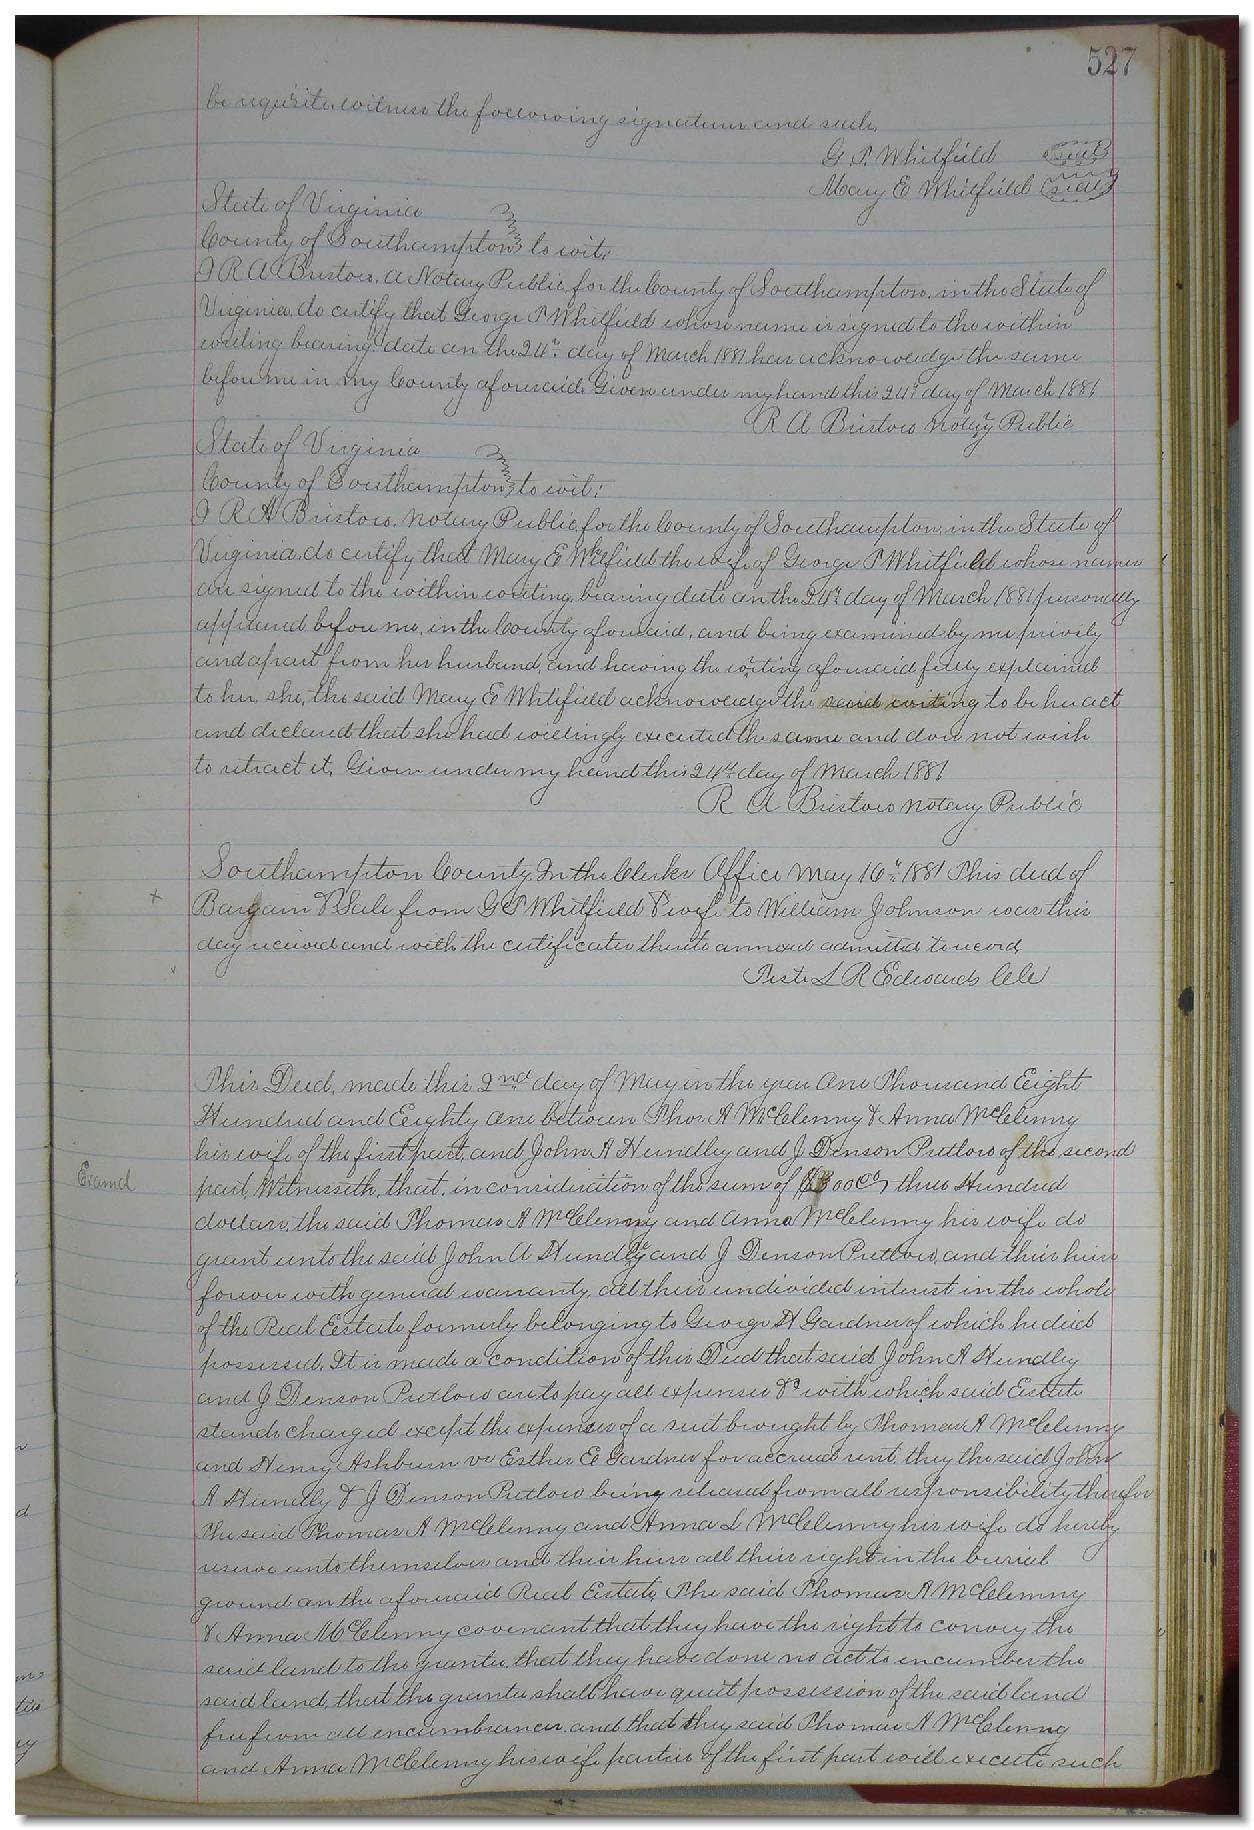 527
be requisite witness the following signature and seals,
G. P. Whitfield seal
Mary E Whitfield seal
State of Virginia
County of Southampton to wit:
I R A Bristow, a Notary Public for the County of Southampton, in the State of
Virginia do certify that George P Whitfield whose name is signed to the within
writing bearing date on the 24th day of March 1881 has acknowledge the same
before me in my County aforesaid. Given under my hand this 24th day of March 1881
R A Bristow Notary Public
State of Virginia
County of Southampton to wit:
I R A Bristow, Notary Public for the County of Southampton, in the State of
Virginia, do certify that Mary E Whitfield the wife of George P Whitfield whose names
are signed to the within writing, bearing date on the 24th day of March 1881 personally
appeared before me, in the County aforesaid, and being examined by me privily
and apart from her husband, and having the writing aforesaid fully explained
to her, she, the said Mary E Whitfield acknowledge the said writing to be her act
and declared that she had willingly executed the same and does not wish
to retract it, Given under my hand this 24th day of March 1881
R A Bristow Notary Public
Southampton County In the Clerks Office May 16th 1881 This deed of
+ Bargain & Sale from G P Whitfield & wife to William Johnson was this
day received and with the certificates thereto annexed admitted to record
Teste L R Edwards Clk
This Deed, made this 2nd day of May in the year One Thousand Eight
Hundred and Eighty One between Thos A McClenny & Anna McClenny
his wife of the first part, and John A Hundley and J Denson Pretlow of the second
Examd part, Witnesseth, that, in consideration of the sum of $300 00 three Hundred
dollars, the said Thomas A McClenny and Anna McClenny his wife do
grant unto the said John A Hundley and J Denson Pretlow, and their heirs
forever with general warranty, all their undivided interest in the whole
of the Real Estate formerly belonging to George H Gardner of which he died
possessed. It is made a condition of this Deed that said John A Hundley
and J Denson Pretlow are to pay all expenses &c with which said Estate
stands charged except the expenses of a suit brought by Thomas A McClenny
and Henry Ashburn vs Esther E Gardner for accrued rent, they the said John
A Hundly & J Denson Pretlow being released from all responsibility therefor
The said Thomas A McClenny and Anna L McClenny his wife do hereby
reserve unto themselves and their heirs all their right in the burial
ground on the aforesaid Real Estate, The said Thomas A McClenny
& Anna McClenny covenant that they have the right to convey the
said land to the grantee, that they have done no act to encumber the
said land, that the grantee shall have quiet possession of the said land
free from all encumbrances, and that they said Thomas A McClenny
and Anna McClenny his wife parties of the first part will execute such